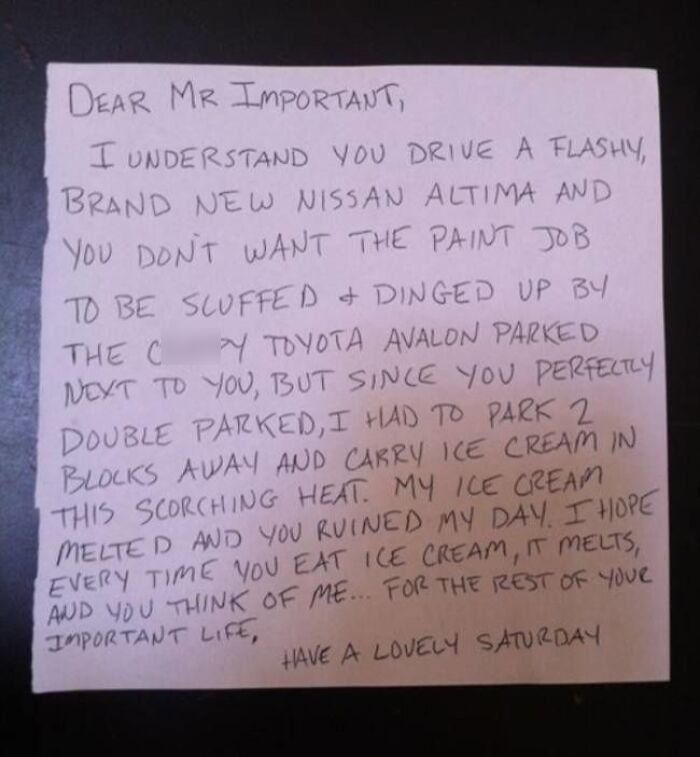 DEAR MR IMPORTANT,
I UNDERSTAND YOU DRIVE A FLASHY,
BRAND NEW NISSAN ALTIMA AND
YOU DON'T WANT THE PAINT JOB
TO BE SCUFFED & DINGED UP BY
THE C PY TOYOTA AVALON PARKED
NEXT TO YOU, BUT SINCE YOU PERFECTLY
DOUBLE PARKED, I HAD TO PARK 2
BLOCKS AWAY AND CARRY ICE CREAM IN
THIS SCORCHING HEAT. MY ICE CREAM
MELTED AND YOU RUINED MY DAY. I HOPE
EVERY TIME YOU EAT ICE CREAM, IT MELTS,
AND YOU THINK OF ME... FOR THE REST OF YOUR
IMPORTANT LIFE,
HAVE A LOVELY SATURDAY